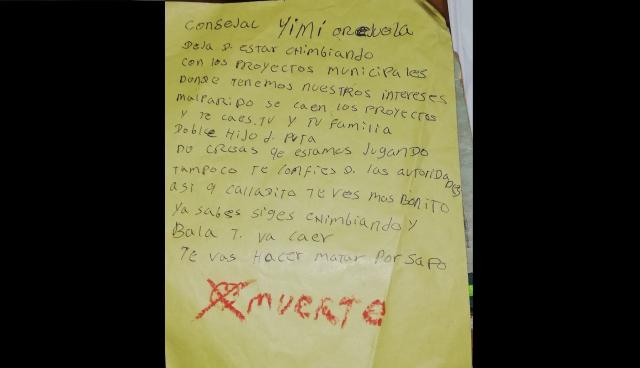 Consejal Yimi orejuela
Deja d. estar chimbiando
con los proyectos municipales
Donde tenemos nuestros intereses
malparido se caen los proyectos
y te caes tu y tu familia
Doble Hijo d. puta
no creas qe estamos jugando
tampoco te confies d. las autoridades
asi q calladito te ves mas Bonito
ya sabes siges chimbiando y
Bala T. va caer
Te vas Hacer matar por sapo
muerte